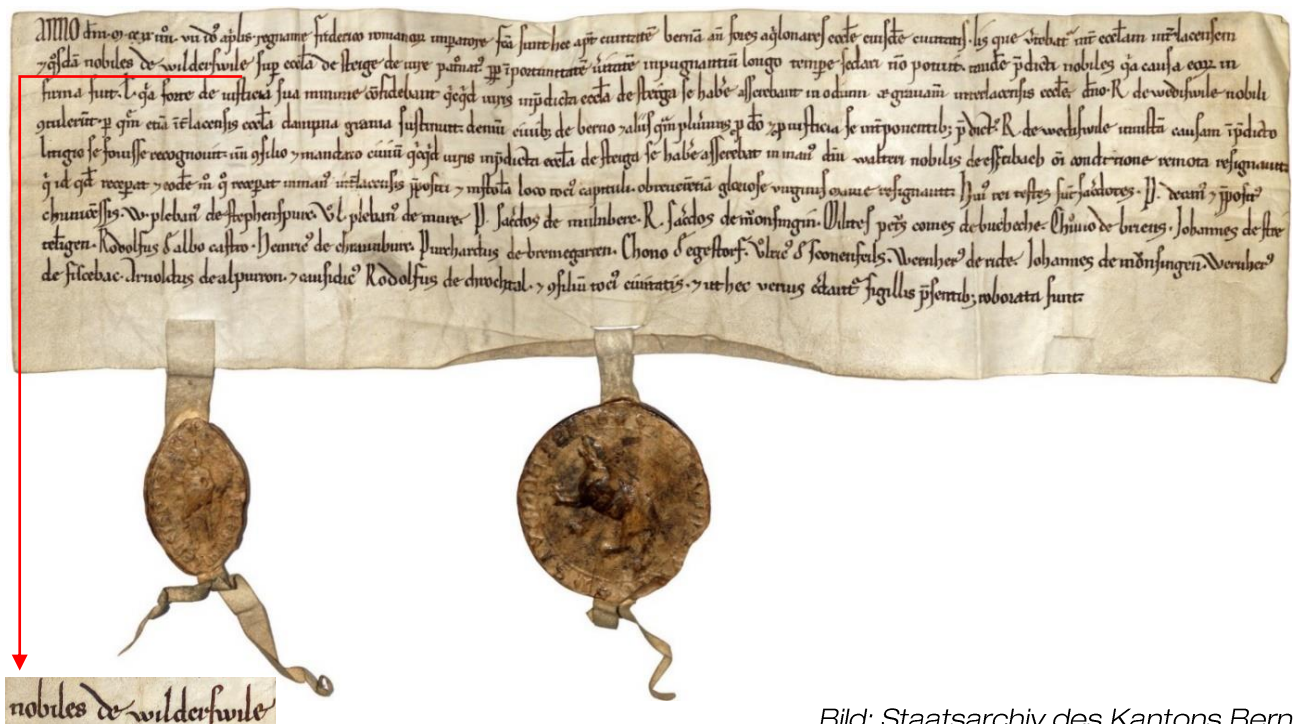 ANNO dni. m. cc. xx. iiii. vii. id' aplis. regnante friderico romanor imperatore fca sunt hec apt civitate berna an fores aglonares eccle eiusde civitatis. lis que vtebat int ecclam intlacensem
7 qsda nobiles de wilderswile sup eccla de steige de iure patnat' pp iportunitate impugnantiu longo tempe sedari no potuit. tande pdicti nobiles qa causa eor in
firma fuit. l qa forte de iusticia sua minime cofidebant qcqd iuris inpdicta eccla de steiga se habe asserebant in odium 7 gravam interlacensis eccle dno. R. de wediswile nobili
9tulerut. p qm etia itlacensis eccla dampna gravia sustinuit. demu civib; de berno 7 aliis qm plurimis p do 7 p iusticia se intponentib; pdict' R. de wediswile iniusta causam ipdicto
litigio se fovisse recognovit. un 9silio 7 mandato civiu qcqd iuris inpdicta eccla de steiga se habe asserebat in man' dni walteri nobilis de esscibach oi conditione remota resignavit.
q id qd recepat 7 eode m q recepat inman' intlacensis ppositi 7 loco toci' capituli. ob reverentia gloriose virginis marie resignavit. Hui' rei testes sut sacdotes. P. decan' 7 pposit'
W. pleban' de stephenspurc. Vl. pleban' de mure. P. sacdos de mulnbere. R. sacdos de monsingin. Milites petr' comes de bucheche. Chuno de briens. Johannes de stre
telingen. Rodolfus d' albo castro. Heinric' de chramburc. Purchardus de bremegarten. Chono d' egestorf. Volric' d' Wernher' de ride. Johannes de monsingen. Wernher'
de silcebac. Arnoldus de alpurron. 7 causidic' Rodolfus de chrochtal. 7 9siliu toci' civitatis. 7 ut hec verius sigillis psentib; roborata sunt.
nobiles de wilderswile
Bild: Staatsarchiv des Kantons Bern